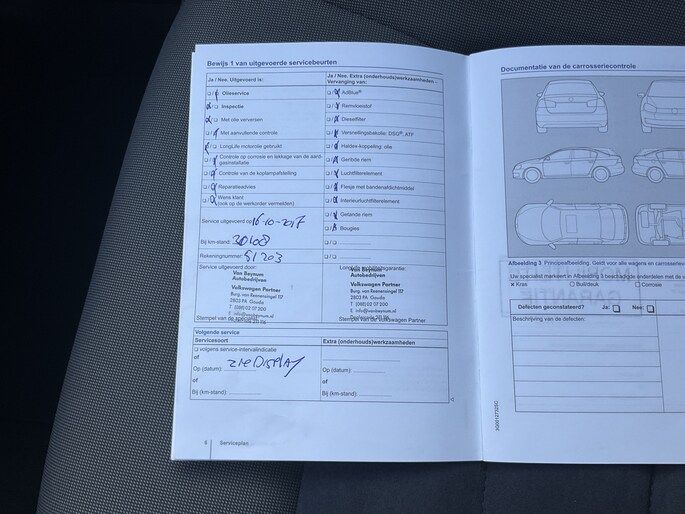 Bewijs 1 van uitgevoerde servicebeurten
Ja / Nee. Uitgevoerd is:
Olieservice
Inspectie
Met olie verversen
Met aanvullende controle
LongLife motorolie gebruikt
Controle op corrosie en lekkage van de aard-
gasinstallatie
Controle van de koplampafstelling
Reparatieadvies
Wens klant
(ook op de werkorder vermelden)
Service uitgevoerd op 16-10-2017
Bij km-stand: 30608
Rekeningnummer: 51203
Service uitgevoerd door:
Van Beynum
Autobedrijven
Volkswagen Partner
Burg. van Reenensingel 117
2803 PA Gouda
Stempel van de
Ja / Nee. Extra (onderhouds)werkzaamheden -
Vervanging van:
AdBlue®
Remvloeistof
Dieselfilter
Versnellingsbakolie: DSG®, ATF
Haldex-koppeling: olie
Geribde riem
Luchtfilterelement
Flesje met bandenafdichtmiddel
Interieurluchtfilterelement
Getande riem
Bougies
LongLife mobiliteitsgarantie:
Van Beynum
Autobedrijven
Volkswagen Partner
Burg. van Reenensingel 117
2803 PA Gouda
Stempel van de Volkswagen Partner
Volgende service
Servicesoort
volgens service-intervalindicatie
of
Op (datum): zie DISPLAY
of
Bij (km-stand):
Extra (onderhouds)werkzaamheden
Op (datum):
of
Bij (km-stand):
6 Serviceplan
Documentatie van de carrosseriecontrole
Afbeelding 3 Principeafbeelding. Geldt voor alle wagens en carrosserie
Uw specialist markeert in Afbeelding 3 beschadigde onderdelen met de v
x Kras
Buil/deuk
Corrosie
Defecten geconstateerd? Ja: Nee:
Beschrijving van de defecten: